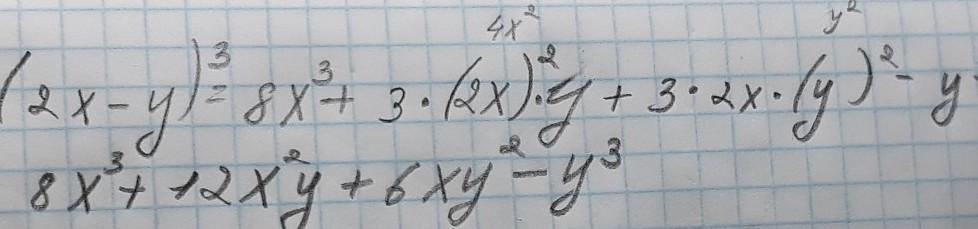 4x² y²
(2x-y)³ = 8x³ + 3·(2x)²·y + 3·2x·(y)² - y
8x³ + 12x²y + 6xy² - y³